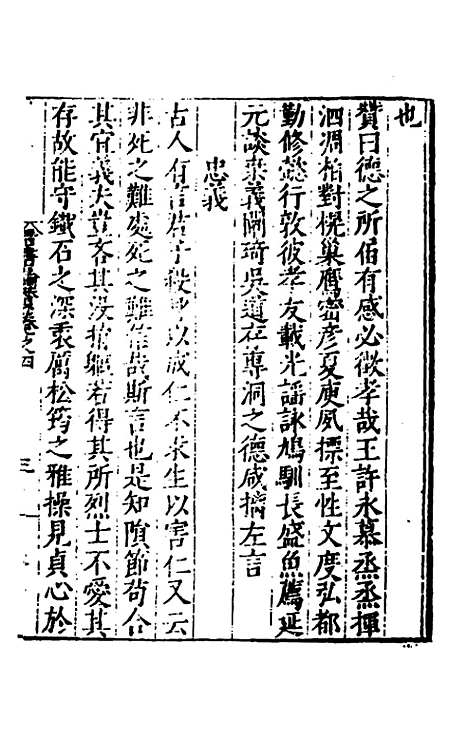 也
贊曰德之所佰有感必徵孝哉王許永慕烝烝揮
泗凋柏對榥巢鷹密彥夏庾夙標至性文度弘都
勤修懿行敦彼孝友載光謡詠鳩馴長盛魚薦延
元談桒義闡琦吳道在專洞之德咸摛左言
忠義
古人有言君子殺身以成仁不求生以害仁又云
非死之難處死之難信哉斯言也是知隕節苟合
其宜義夫豈吝其没捐軀若得其所烈士不愛其
存故能守鐵石之深衷厲松筠之雅操見貞心於
三